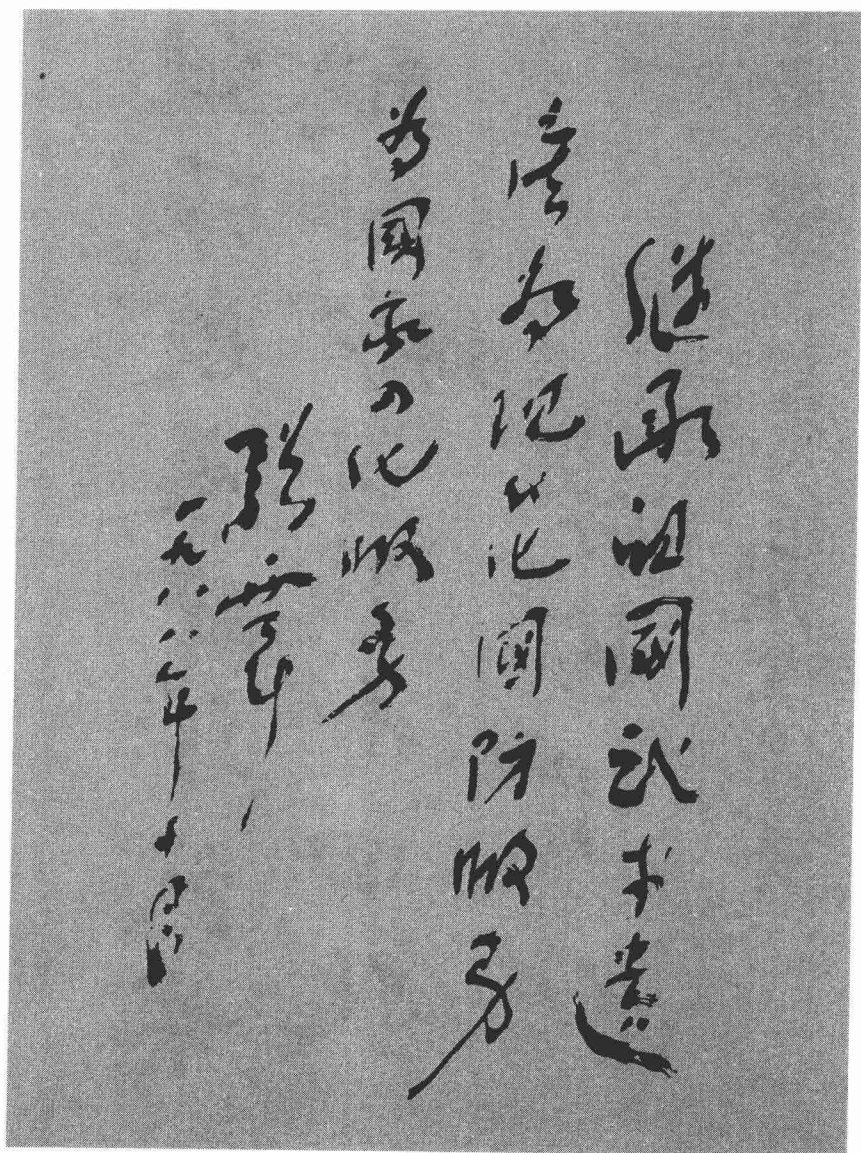 继承祖國武术遗
產为现代化國防服务
为國家四化服务
张震
一九八八年十月